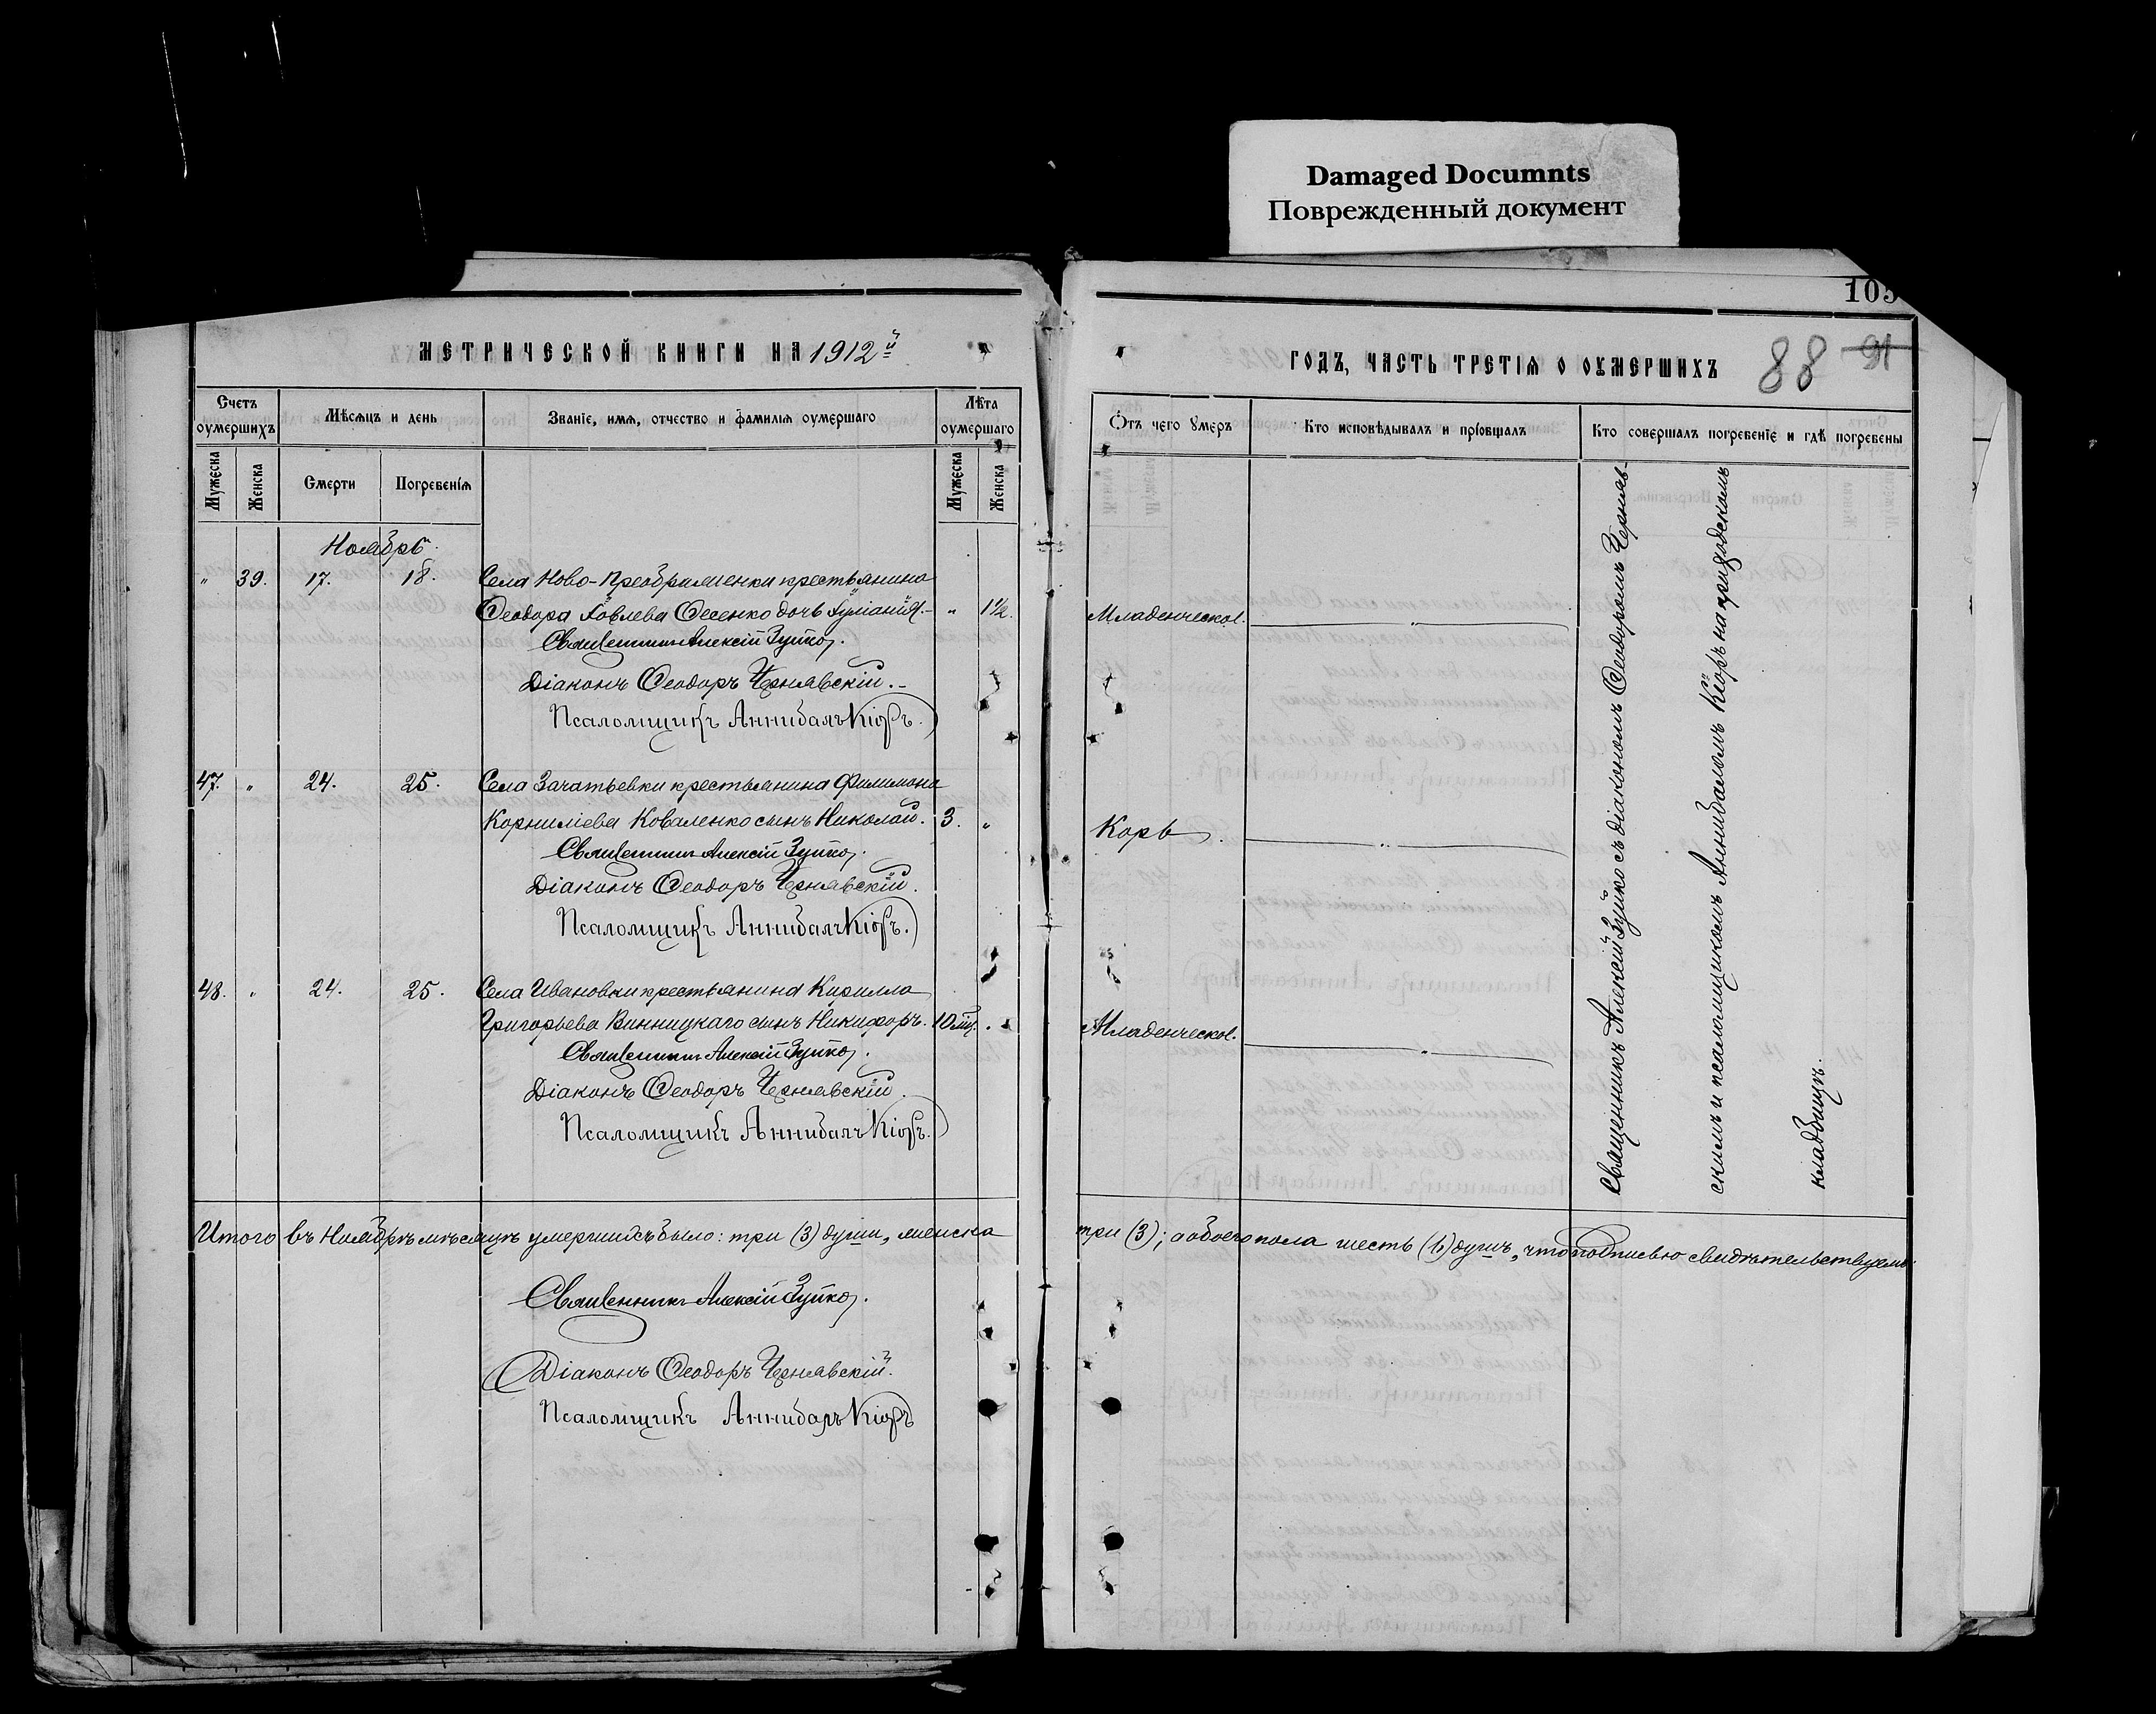 Damaged Documnts
Поврежденный документ
105
МЕТРИЧЕСКОЙ КНИГИ НА 1912й
ГОДЪ, ЧАСТЬ ТРЕТІѦ О ОУМЕРШИХЪ
88 91
Счетъ оумершихъ
Мѣсѧцъ и день
Званіе, имѧ, отчество и фамиліѧ оумершаго
Лѣта оумершаго
Отъ чего умеръ
Кто исповѣдывалъ и пріобщалъ
Кто совершалъ погребеніе и гдѣ погребены
Мужеска Женска Смерти Погребеніѧ Мужеска Женска
Ноябрь.
" 39. 17. 18. Села Ново-Преображенки крестьянина
Ѳеодора Іовлева Ѳесенко дочь Іуліанія. " 1½. Младенческой. "
Священникъ Алексій Зуйко.
Діаконъ Ѳеодоръ Чернявскій.
Псаломщикъ Аннибалъ Кіоръ.
47. " 24. 25. Села Зачатьевки крестьянина Филимона
Корниліева Коваленко сынъ Николай. 3. " Корь. "
Священникъ Алексій Зуйко.
Діаконъ Ѳеодоръ Чернявскій.
Псаломщикъ Аннибалъ Кіоръ.
48. " 24. 25. Села Ивановки крестьянина Кирилла
Григорьева Винницкаго сынъ Никифоръ. 10 мц. " Младенческой. "
Священникъ Алексій Зуйко.
Діаконъ Ѳеодоръ Чернявскій.
Псаломщикъ Аннибалъ Кіоръ.
Священникъ Алексій Зуйко съ діакономъ Ѳеодоромъ Черняв-
скимъ и псаломщикомъ Аннибаломъ Кіоръ на приходскомъ
кладбищѣ.
Итого въ Ноябрѣ мѣсяцѣ умершихъ было: три (3) души, женска три (3); а обоего пола шесть (6) душъ, что подписью свидѣтельствуемъ.
Священникъ Алексій Зуйко.
Діаконъ Ѳеодоръ Чернявскій.
Псаломщикъ Аннибалъ Кіоръ